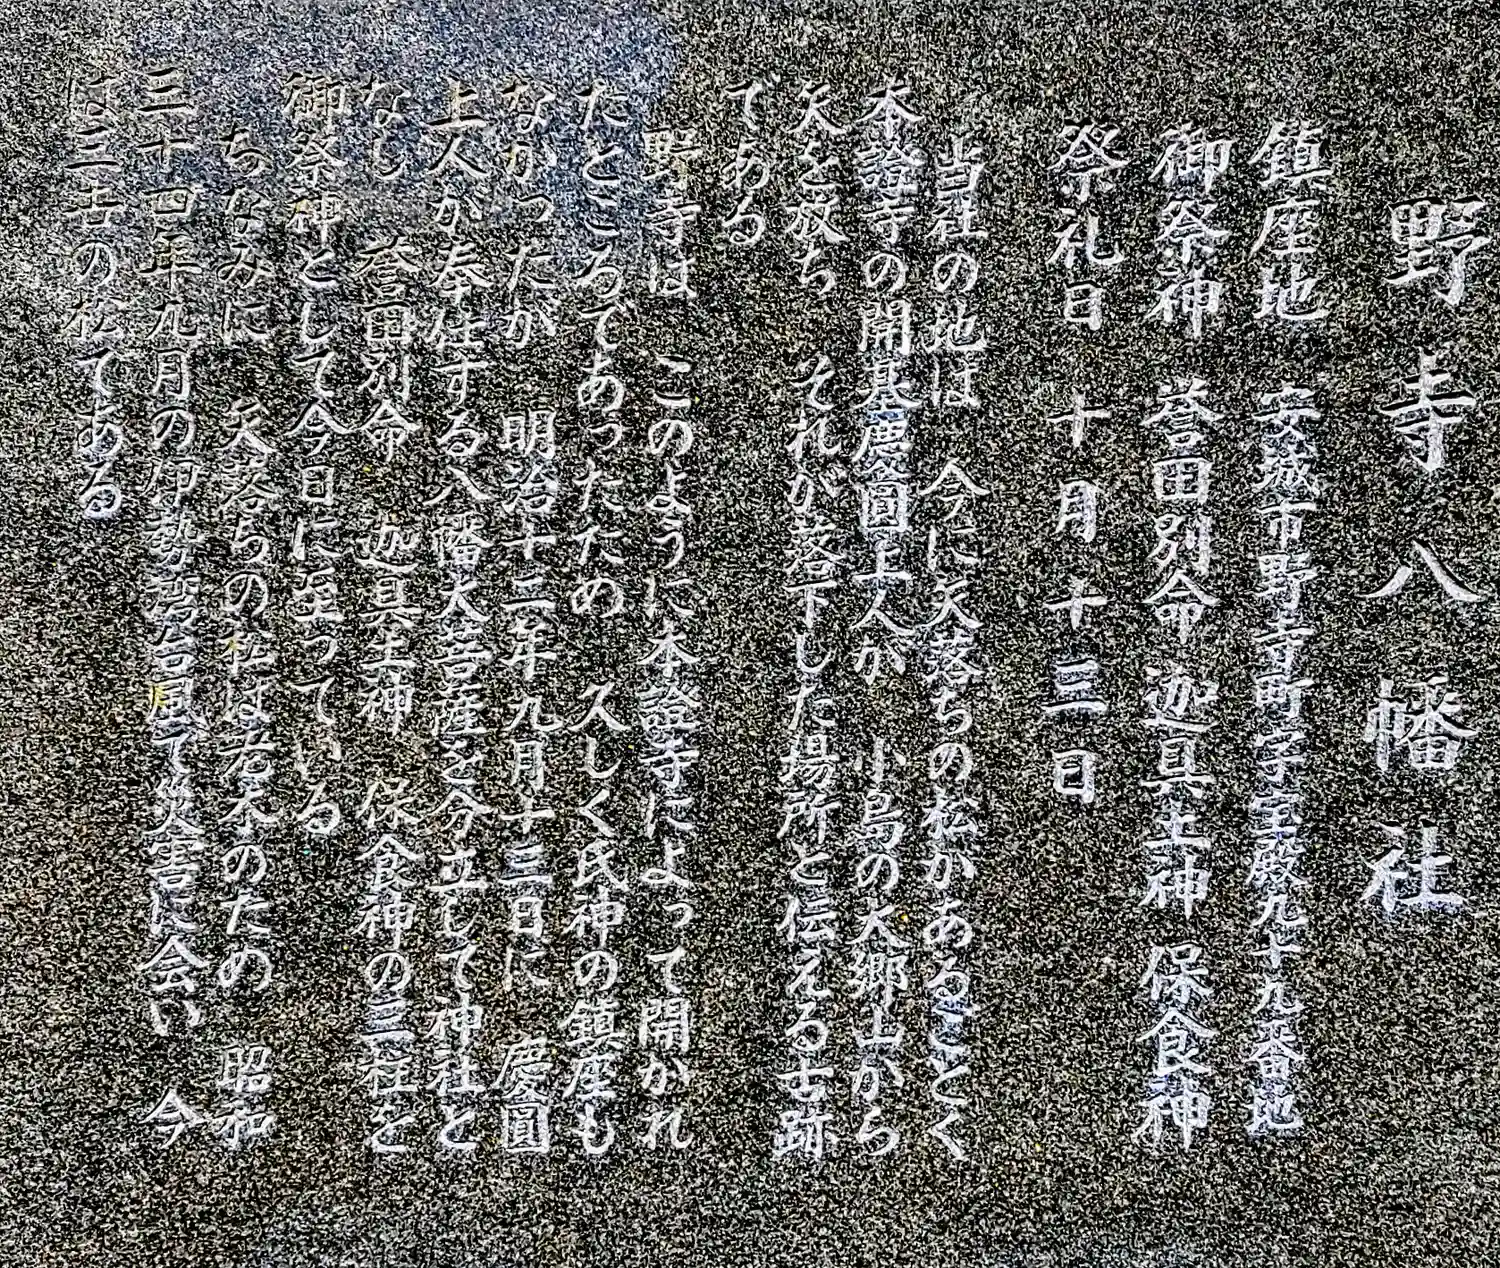 野寺八幡社
鎮座地 安城市野寺町字宝殿九十九番地
御祭神 誉田別命 迦具土神 保食神
祭礼日 十月十三日
当社の地は 今に矢落ちの松があるごとく
本證寺の開基慶圓上人が 小島の大郷山から
矢を放ち それが落下した場所と伝える古跡
である
野寺は このように本證寺によって開かれ
たところであったため 久しく氏神の鎮座も
なかったが 明治十三年九月十三日に 慶圓
上人が奉仕する八幡大菩薩を分立して神社と
なし 誉田別命 迦具土神 保食神の三社を
御祭神として今日に至っている
ちなみに 矢落ちの松は老木のため 昭和
三十四年九月の伊勢湾台風で災害に会い 今
は三
の松である